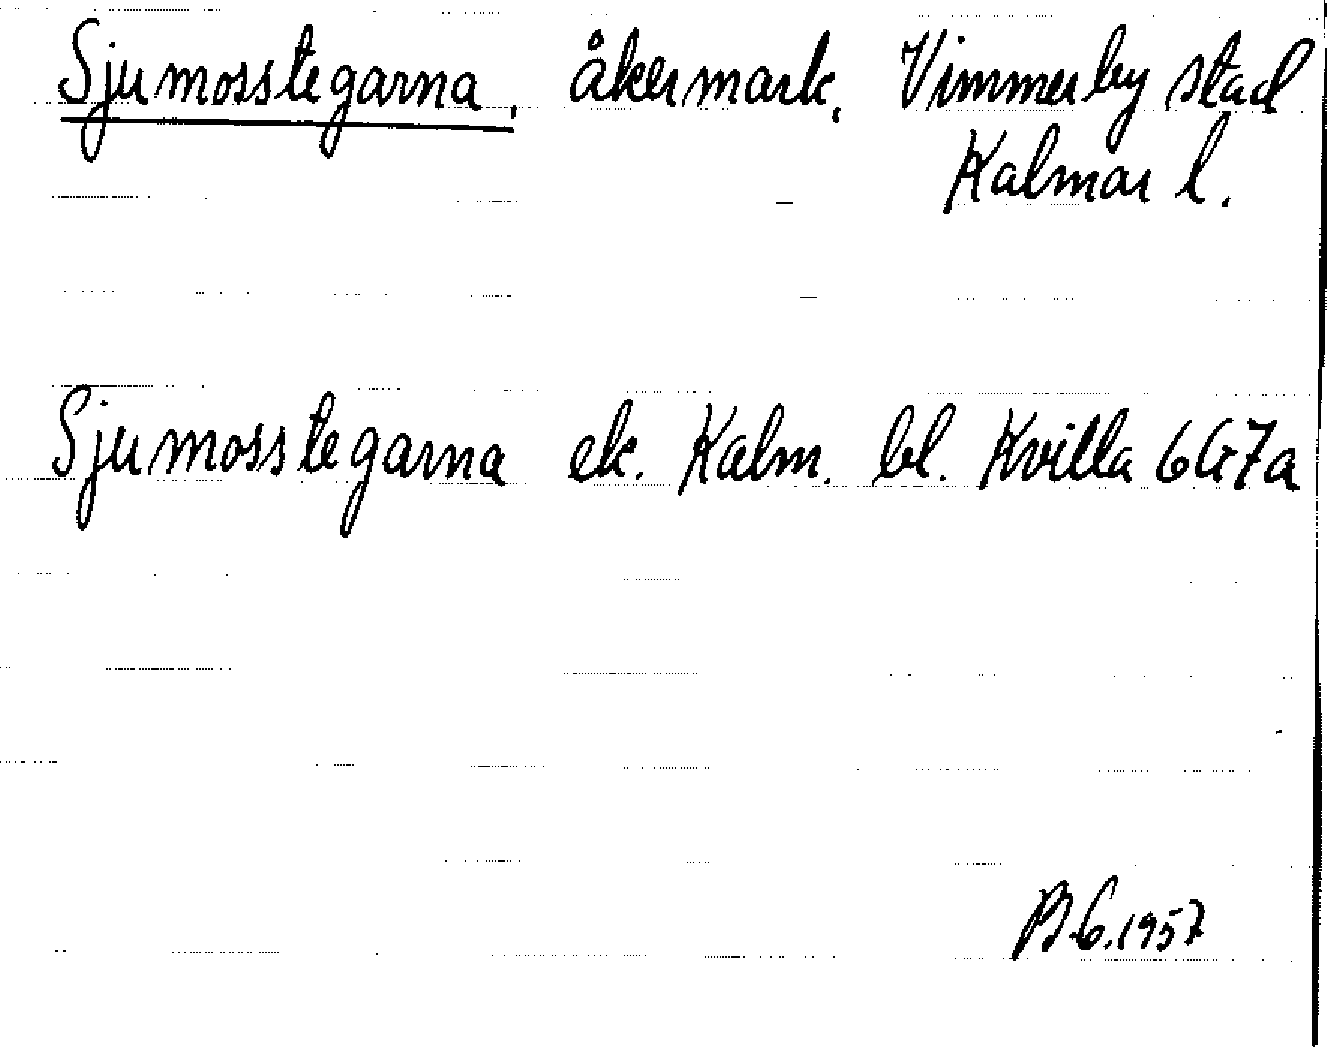 Sjumosstegarna, åkermark, Vimmerby stad
Kalmar l.
Sjumosstegarna ek. Kalm. bl. Kvilla 6G7a
1957